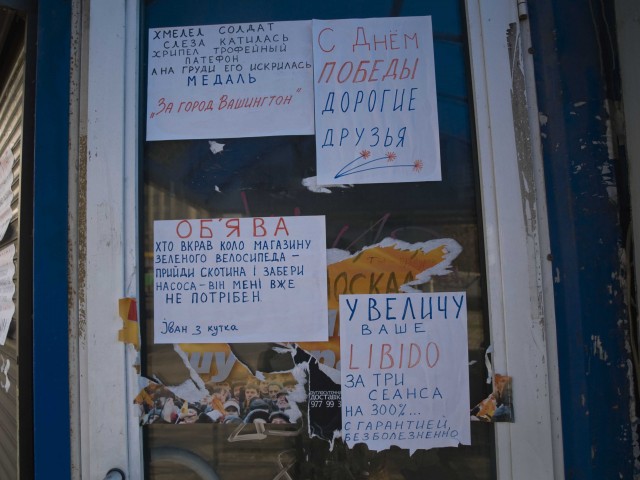 ХМЕЛЕЛ СОЛДАТ
СЛЕЗА КАТИЛАСЬ
ХРИПЕЛ ТРОФЕЙНЫЙ
ПАТЕФОН
А НА ГРУДИ ЕГО ИСКРИЛАСЬ
МЕДАЛЬ
"ЗА ГОРОД ВАШИНГТОН"
С ДНЁМ
ПОБЕДЫ
ДОРОГИЕ
ДРУЗЬЯ
ОБ'ЯВА
ХТО ВКРАВ КОЛО МАГАЗИНУ
ЗЕЛЕНОГО ВЕЛОСИПЕДА –
ПРИЙДИ СКОТИНА І ЗАБЕРИ
НАСОСА – ВІН МЕНІ ВЖЕ
НЕ ПОТРІБЕН
Іван з кутка
УВЕЛИЧУ
ВАШЕ
LIBIDO
ЗА ТРИ
СЕАНСА
НА 300%...
С ГАРАНТИЕЙ,
БЕЗБОЛЕЗНЕННО
ДОСТАВК
977 99 3